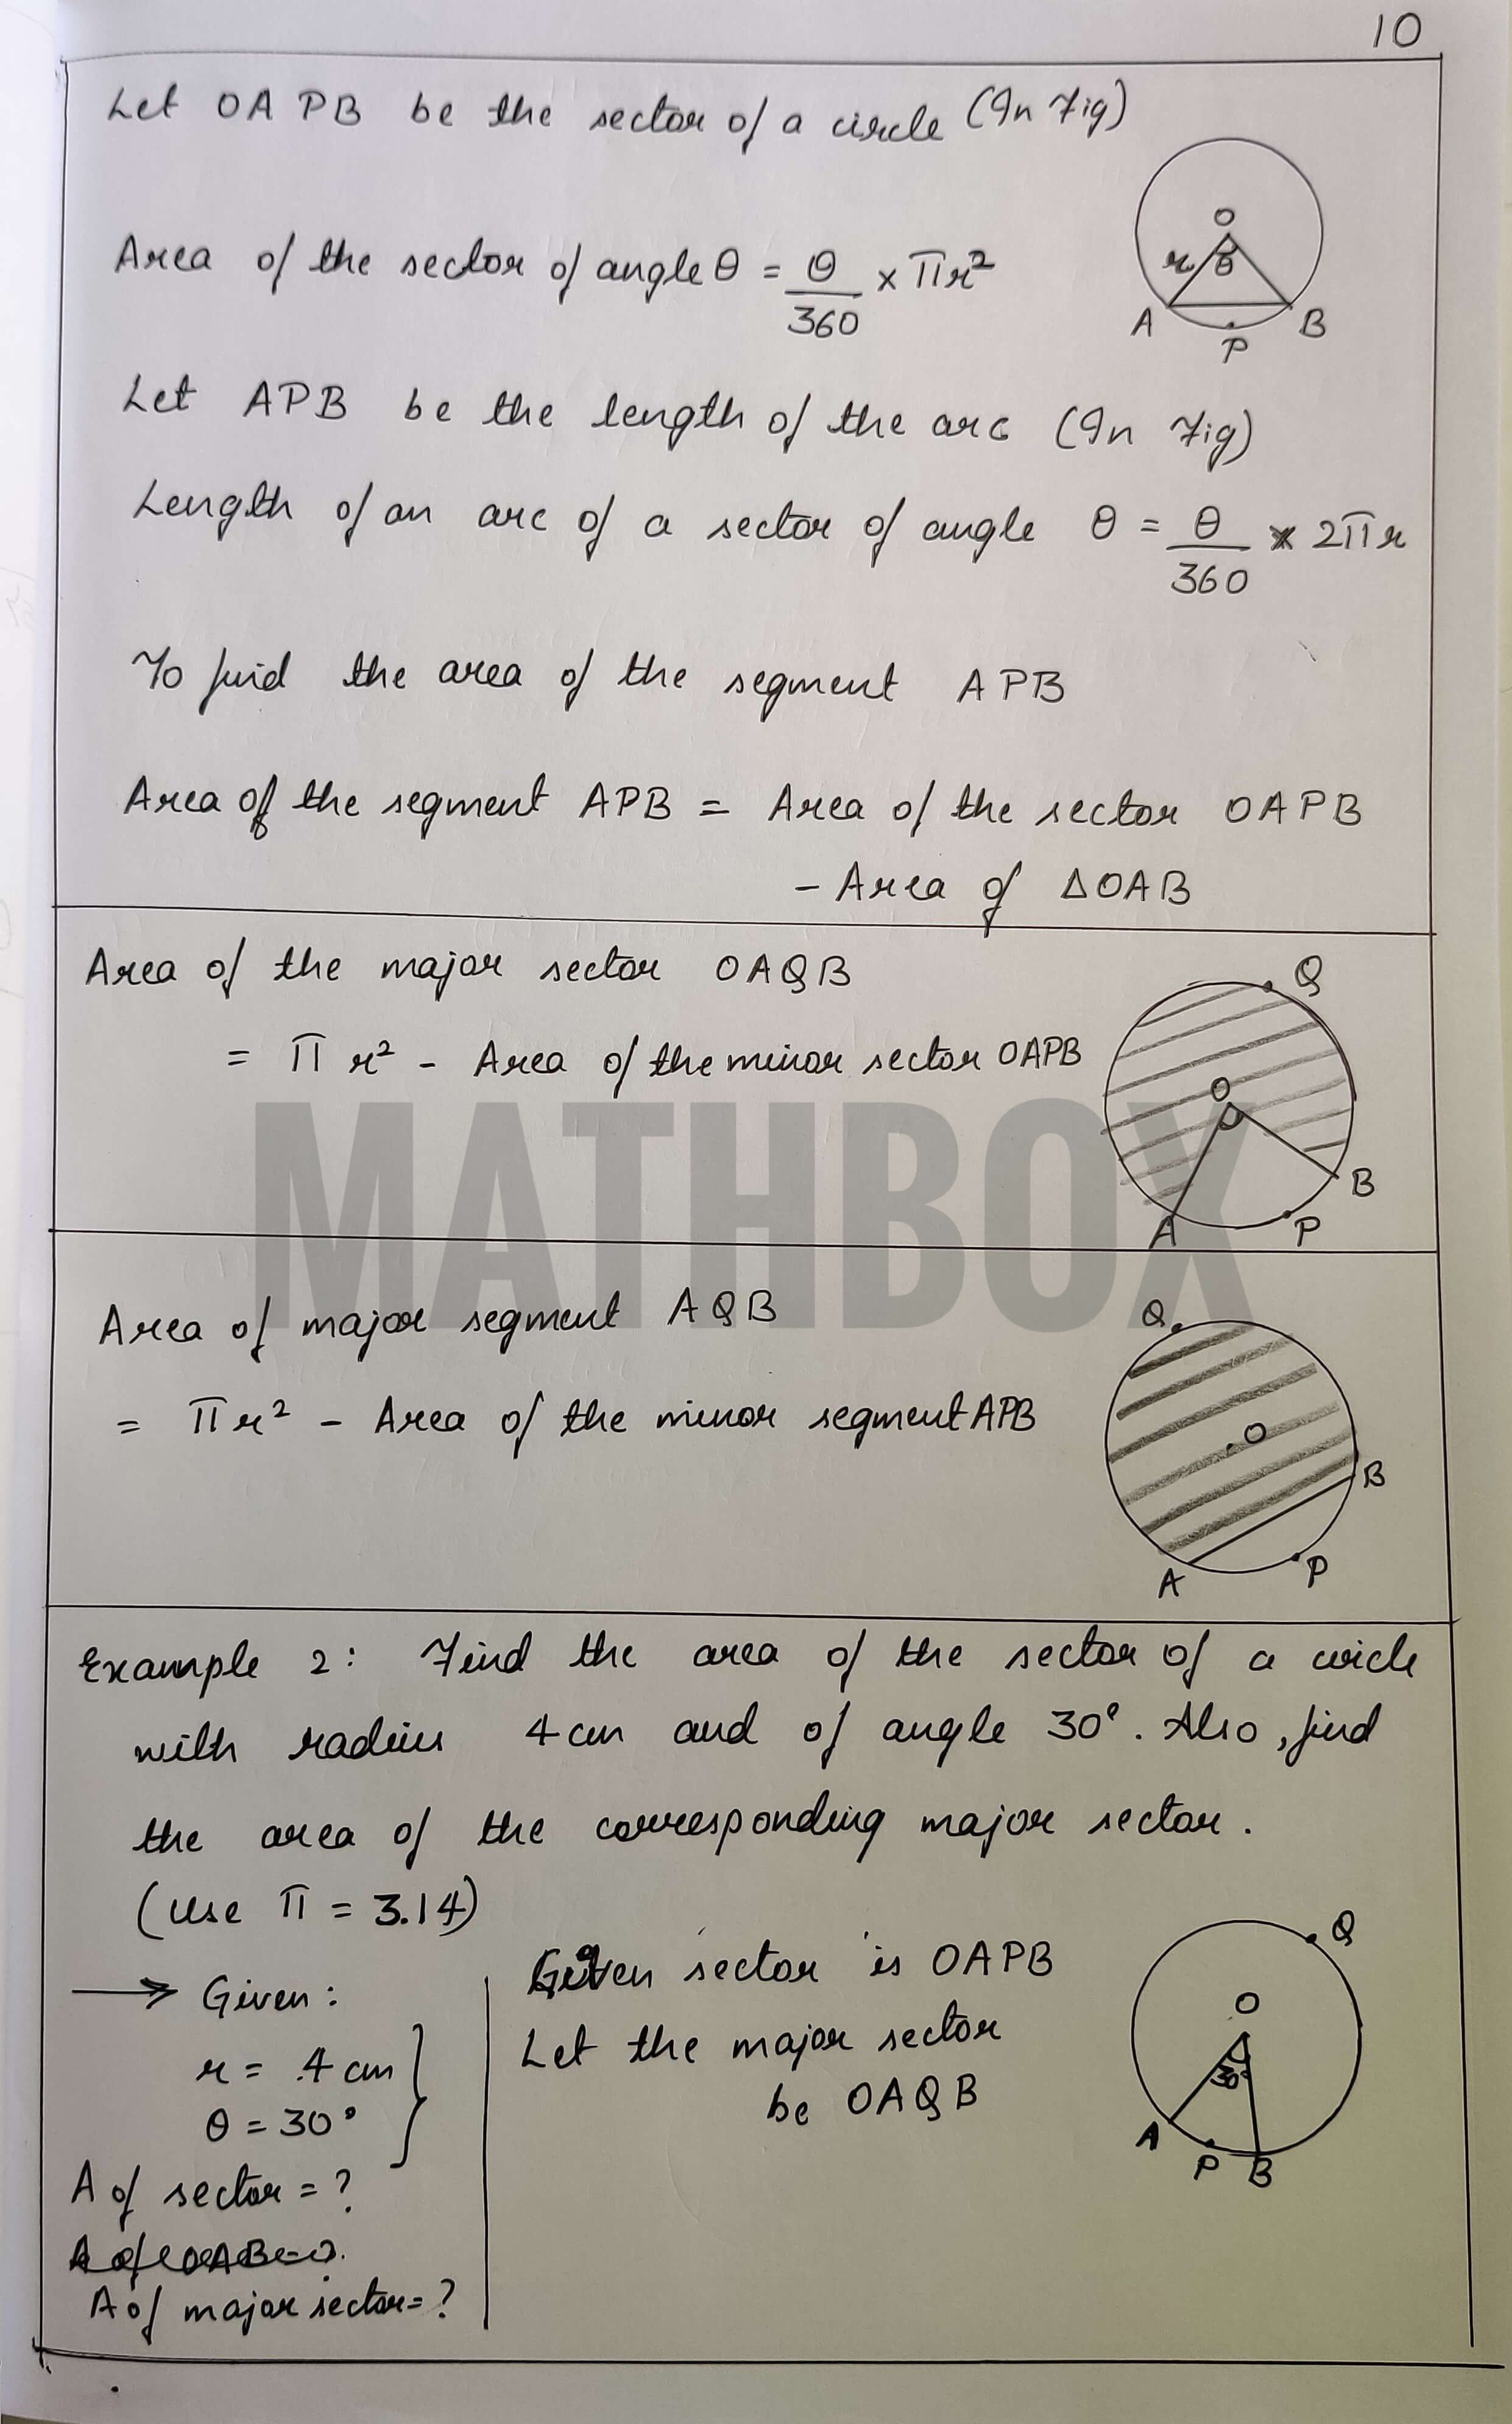 10
Let OAPB be the sector of a circle (In Fig)
O
r θ
A B
P
Area of the sector of angle θ = θ/360 × πr²
Let APB be the length of the arc (In Fig)
Length of an arc of a sector of angle θ = θ/360 × 2πr
To find the area of the segment APB
Area of the segment APB = Area of the sector OAPB
– Area of ΔOAB
Area of the major sector OAQB
= πr² - Area of the minor sector OAPB
Q
O
B
A P
MATHBOX
Area of major segment AQB
= πr² - Area of the minor segment APB
Q
O
B
A P
Example 2: Find the area of the sector of a circle
with radius 4 cm and of angle 30°. Also, find
the area of the corresponding major sector.
(Use π = 3.14)
→ Given:
r = 4 cm
θ = 30°
A of sector = ?
A of OAB = ?
A of major sector = ?
Given sector is OAPB
Let the major sector
be OAQB
Q
O
30°
A P B